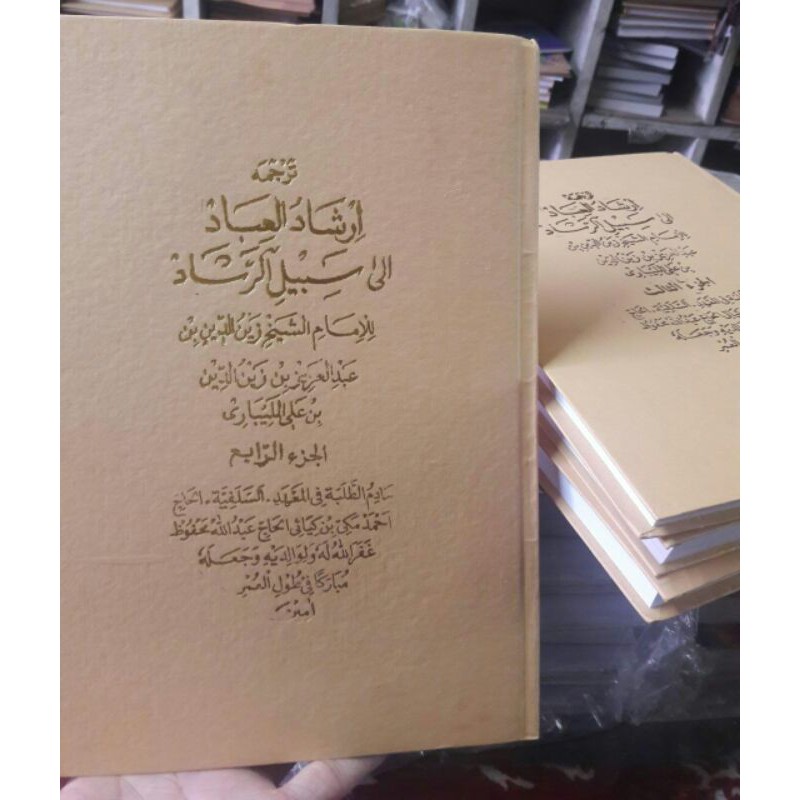 ترجمه
اِرْشَادُ الْعِبَادْ
اِلىٰ سَبِيْلِ الرَّشَادْ
لِلْاِمَامِ الشَّيْخِ زَيْنِ الدِّيْنِ بْنِ
عَبْدِ الْعَزِيْزِ بْنِ زَيْنِ الدِّيْنِ
بْنِ عَلِي الْمَلِيْبَارِى
الجزء الرَّابع
خادِم الطَّلَبَة فِي الْمَعْهَدِ. السَّلَفِيَّة. الحاج
احْمَدْ مَكِي بْن كِيَائِي الحَاجْ عَبْدُ اللهْ مَحْفُوظْ
غَفَرَ اللهُ لَهُ وَلِوَالِدَيْهِ وَجَعَلَهُ
مُبَارَكًا فِيْ طُوْلِ الْعُمْرِ
امين
ترجمه
اِرْشَادُ الْعِبَادْ
الى سَبِيْلِ الرَّشَادْ
بن علي المليبارى
الجزء الثالث